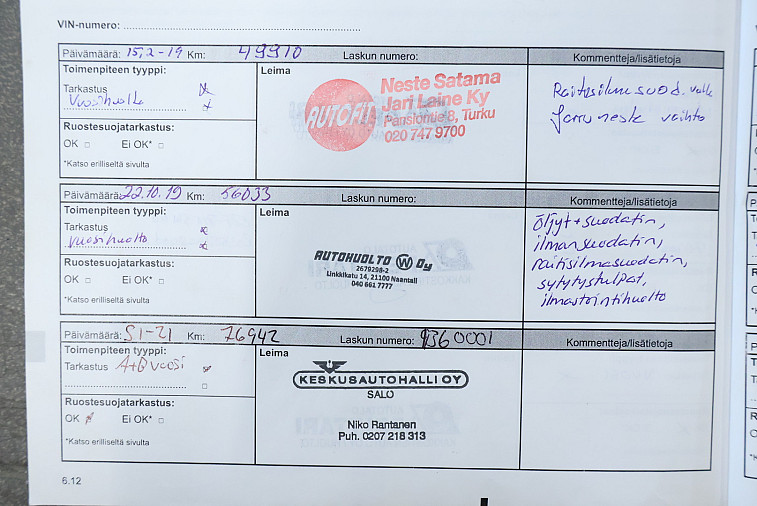 VIN-numero:
Päivämäärä: 15,2-19 Km: 49910 Laskun numero: Kommentteja/lisätietoja
Toimenpiteen tyyppi: Leima
Tarkastus
Vuosihuolto
Ruostesuojatarkastus:
OK Ei OK*
*Katso erilliseltä sivulta
AUTOFIT
Neste Satama
Jari Laine Ky
Pansiontie 8, Turku
020 747 9700
Raitisilmasuod. vaihto
Jarruneste vaihto
Päivämäärä: 22.10.19 Km: 56033 Laskun numero: Kommentteja/lisätietoja
Toimenpiteen tyyppi: Leima
Tarkastus
vuosihuolto
Ruostesuojatarkastus:
OK Ei OK*
*Katso erilliseltä sivulta
AUTOHUOLTO W Oy
2679298-2
Linkkikatu 14, 21100 Naantali
040 661 7777
öljyt+suodatin,
ilmansuodatin,
raitisilmasuodatin,
sytytystulpat,
ilmastointihuolto
Päivämäärä: 51-21 Km: 76942 Laskun numero: 9360001 Kommentteja/lisätietoja
Toimenpiteen tyyppi: Leima
Tarkastus A+B vuosi
Ruostesuojatarkastus:
OK Ei OK*
*Katso erilliseltä sivulta
KESKUSAUTOHALLI OY
SALO
Niko Rantanen
Puh. 0207 218 313
6.12